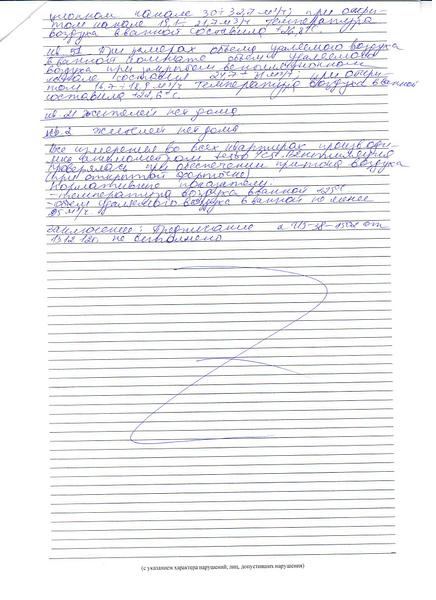 ционном канале 30÷32,7 м³/ч; при откры-
том канале 19÷21,7 м³/ч Температура
воздуха в ванной составила +26,8°С.
кв. При замерах объема удаляемого воздуха
в ванной комнате объем удаляемого
воздуха при закрытом вентиляционном
канале составил 24,7÷ м³/ч; при откры-
том 16,7÷18,9 м³/ч Температура воздуха в ванной
составила +22,6°С.
кв. 21 жителей нет дома
кв. 2 жителей нет дома
Все измерения во всех квартирах производи-
лись анемометром testo Вентиляция
проверялась при обеспечении притока воздуха
(при открытой форточке)
Нормативные показатели:
- температура воздуха в ванной +25°С
- объем удаляемого воздуха в ванной не менее
25 м³/ч
Заключение: Предписание от
13.12.12г. не исполнено
(с указанием характера нарушений, лиц, допустивших нарушения)